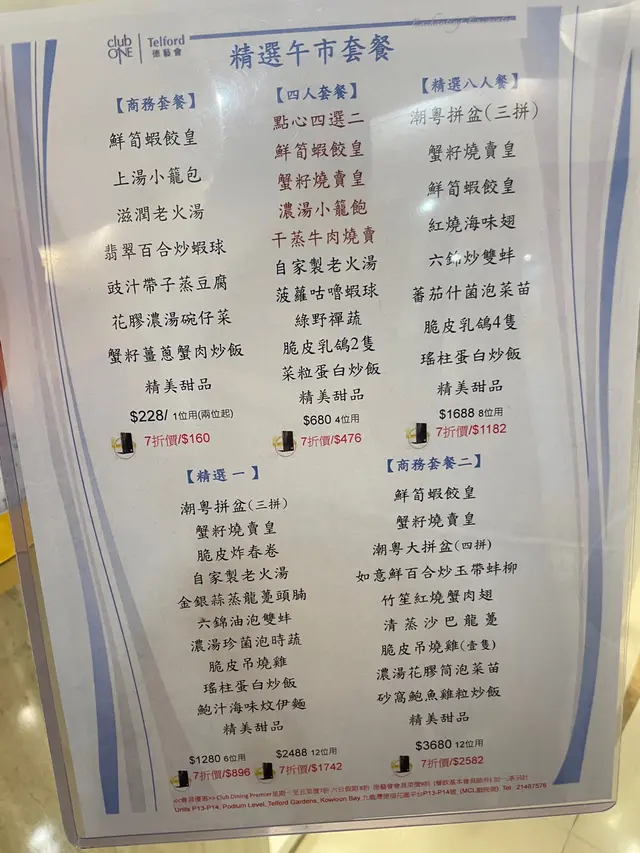 club ONE
Telford 德藝會
精選午市套餐
【商務套餐】
鮮筍蝦餃皇
上湯小籠包
滋潤老火湯
翡翠百合炒蝦球
豉汁帶子蒸豆腐
花膠濃湯碗仔菜
蟹籽薑蔥蟹肉炒飯
精美甜品
$228/ 1位用(兩位起)
7折價/$160
【四人套餐】
點心四選二
鮮筍蝦餃皇
蟹籽燒賣皇
濃湯小籠飽
干蒸牛肉燒賣
自家製老火湯
菠蘿咕嚕蝦球
綠野禪蔬
脆皮乳鴿2隻
菜粒蛋白炒飯
精美甜品
$680 4位用
7折價/$476
【精選八人餐】
潮粵拼盆(三拼)
蟹籽燒賣皇
鮮筍蝦餃皇
紅燒海味翅
六錦炒雙蚌
蕃茄什菌泡菜苗
脆皮乳鴿4隻
瑤柱蛋白炒飯
精美甜品
$1688 8位用
7折價/$1182
【精選一】
潮粵拼盆(三拼)
蟹籽燒賣皇
脆皮炸春卷
自家製老火湯
金銀蒜蒸龍躉頭腩
六錦油泡雙蚌
濃湯珍菌泡時蔬
脆皮吊燒雞
瑤柱蛋白炒飯
鮑汁海味炆伊麵
精美甜品
$1280 6位用
7折價/$896
$2488 12位用
7折價/$1742
【商務套餐二】
鮮筍蝦餃皇
蟹籽燒賣皇
潮粵大拼盆(四拼)
如意鮮百合炒玉帶蚌柳
竹笙紅燒蟹肉翅
清蒸沙巴龍躉
脆皮吊燒雞(壹隻)
濃湯花膠筒泡菜苗
砂窩鮑魚雞粒炒飯
精美甜品
$3680 12位用
7折價/$2582
<<會員優惠>> Club Dining Premier 星期一至五菜價7折
Units P13-P14, Podium Level, Telford Gardens, Kowloon Bay 九龍灣德福花園平台P13-P14號 (MCL戲院側) Tel : 21487578